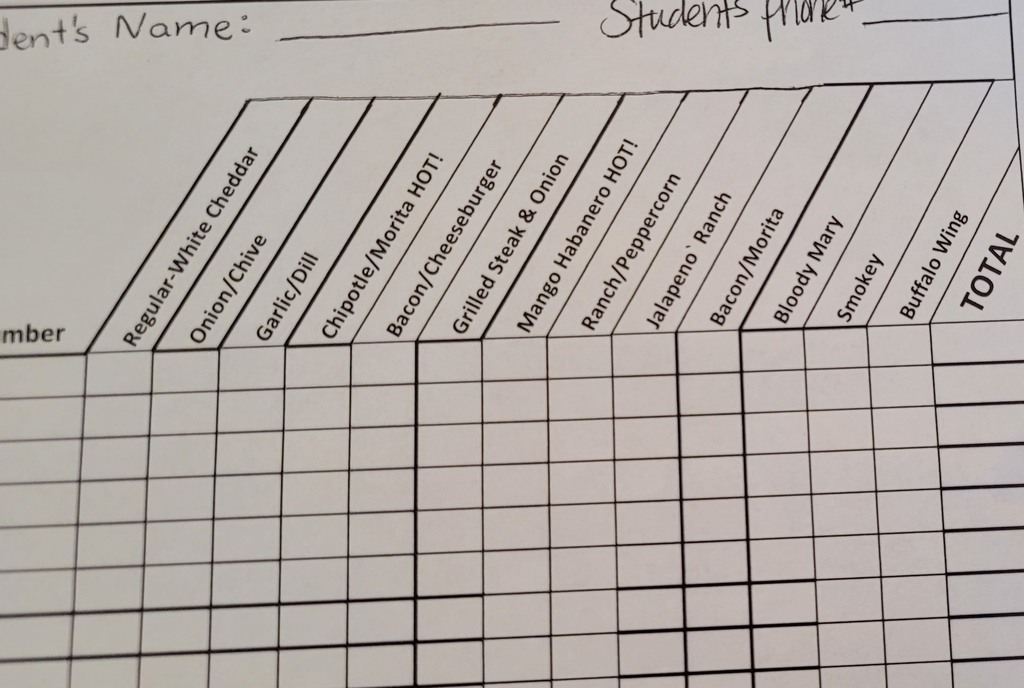 dent's Name:
Students phone#
mber
Regular-White Cheddar
Onion/Chive
Garlic/Dill
Chipotle/Morita HOT!
Bacon/Cheeseburger
Grilled Steak & Onion
Mango Habanero HOT!
Ranch/Peppercorn
Jalapeno` Ranch
Bacon/Morita
Bloody Mary
Smokey
Buffalo Wing
TOTAL